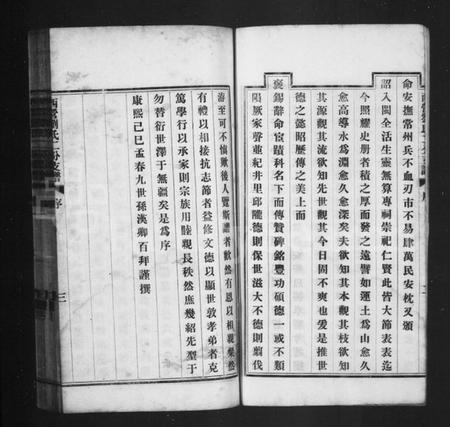 命安撫常州兵不血刃市不易肆萬民安枕又頒
詔入閩全活生靈無算專祠崇祀仁賢此皆大節表表迄
今照耀史册者積之厚而發之遠譬如運土爲山愈久
愈高導水爲淵愈久愈深矣夫欲知其本觀其枝欲知
其源觀其流欲知先世觀其今日固不爽也爰是推世
德之懿昭歷傳之美上而
褒錫辭命宸蹟科名下而傳贊碑銘豐功碩德一或不類
隕厥家聲並紀井里邱隴德則保世滋大不德則翦伐
洊至可不愼歟後人覽斯譜者歡然有恩以相親粲然
有禮以相接抗志節者益修文德以顯世敦孝弟者克
篤學行以承家則宗族用睦親長秩然庶幾紹先塋于
勿替衍世澤于無疆矣是爲序
康熙己巳孟春九世孫漢卿百拜謹撰
序
三